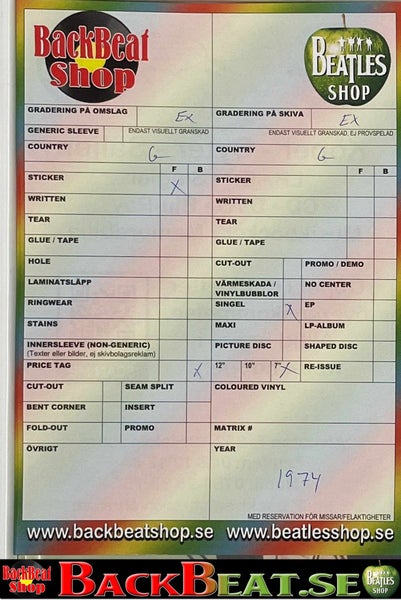 BackBeat Shop
BEATLES SHOP
GRADERING PÅ OMSLAG Ex
GRADERING PÅ SKIVA EX
GENERIC SLEEVE
ENDAST VISUELLT GRANSKAD
ENDAST VISUELLT GRANSKAD, EJ PROVSPELAD
COUNTRY G
COUNTRY G
F B
F B
STICKER X
STICKER
WRITTEN
WRITTEN
TEAR
TEAR
GLUE / TAPE
GLUE / TAPE
HOLE
CUT-OUT
PROMO / DEMO
LAMINATSLÄPP
VÄRMESKADA /
VINYLBUBBLOR
NO CENTER
RINGWEAR
SINGEL X
EP
STAINS
MAXI
LP-ALBUM
INNERSLEEVE (NON-GENERIC)
(Texter eller bilder, ej skivbolagsreklam)
PICTURE DISC
SHAPED DISC
PRICE TAG X
12" 10" 7" X
RE-ISSUE
CUT-OUT
SEAM SPLIT
COLOURED VINYL
BENT CORNER
INSERT
FOLD-OUT
PROMO
MATRIX #
ÖVRIGT
YEAR
1974
MED RESERVATION FÖR MISSAR/FELAKTIGHETER
www.backbeatshop.se www.beatlesshop.se
BackBeat Shop
BACKBEAT.SE
BEATLES SHOP